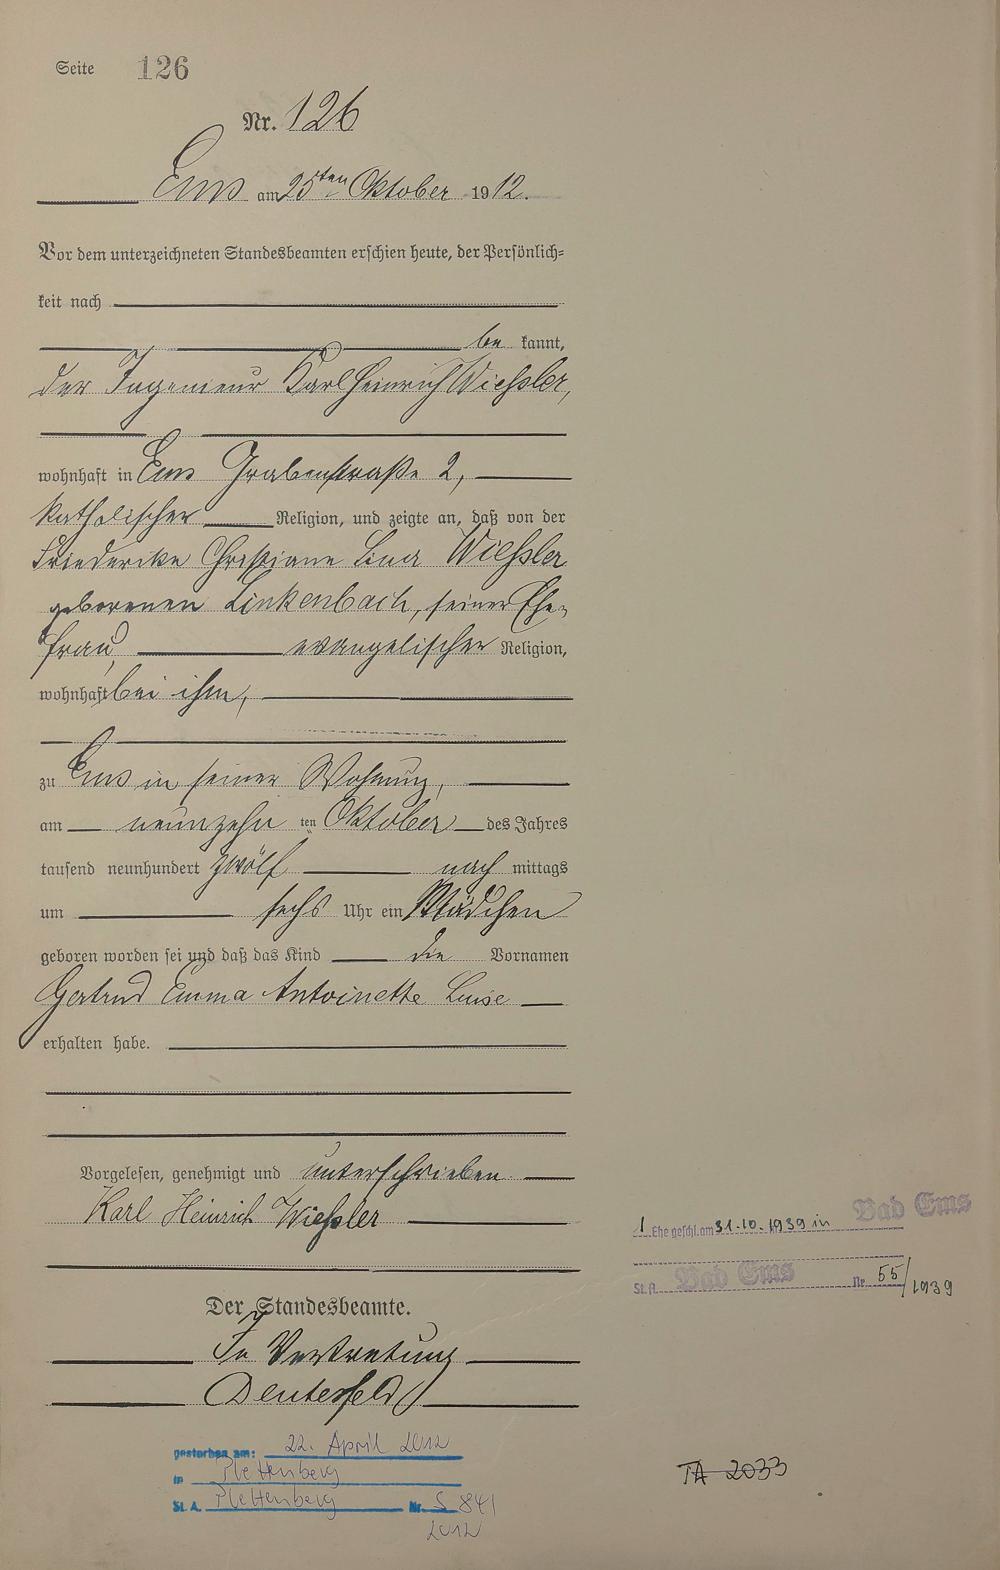 Seite 126
Nr. 126
Ems am 25ten Oktober 1912.
Vor dem unterzeichneten Standesbeamten erschien heute, der Persönlich=
keit nach
be kannt,
der Ingenieur Karl Heinrich Wießler,
wohnhaft in Ems Grabenstraße 2,
katholischer Religion, und zeigte an, daß von der
Friederike Christiane Lina Wießler
geborenen Linkenbach, seiner Ehe-
frau, evangelischer Religion,
wohnhaft bei ihm,
zu Ems in seiner Wohnung,
am neunzehn ten Oktober des Jahres
tausend neunhundert zwölf nach mittags
um sechs Uhr ein Mädchen
geboren worden sei und daß das Kind die Vornamen
Gertrud Emma Antoinette Luise
erhalten habe.
Vorgelesen, genehmigt und unterschrieben
Karl Heinrich Wießler
Der Standesbeamte.
In Vertretung
1. Ehe geschl. am 31.10.1939 in Bad Ems
St. A. Bad Ems Nr. 55/1939
gestorben am: 22. April 2012
in Plettenberg
St. A. Plettenberg Nr. S 841
2012
TA 2033